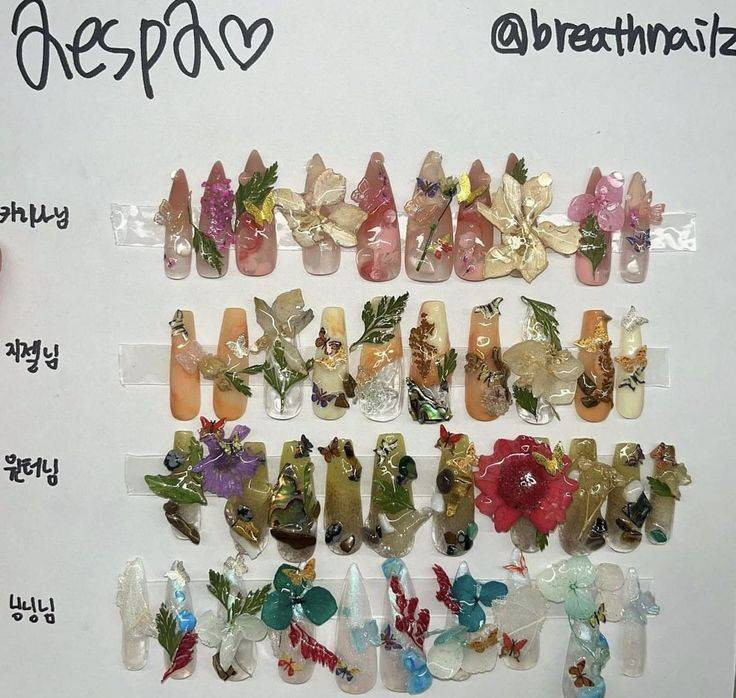 aespa♡
@breathnailz
카리나님
지젤님
윈터님
닝닝님